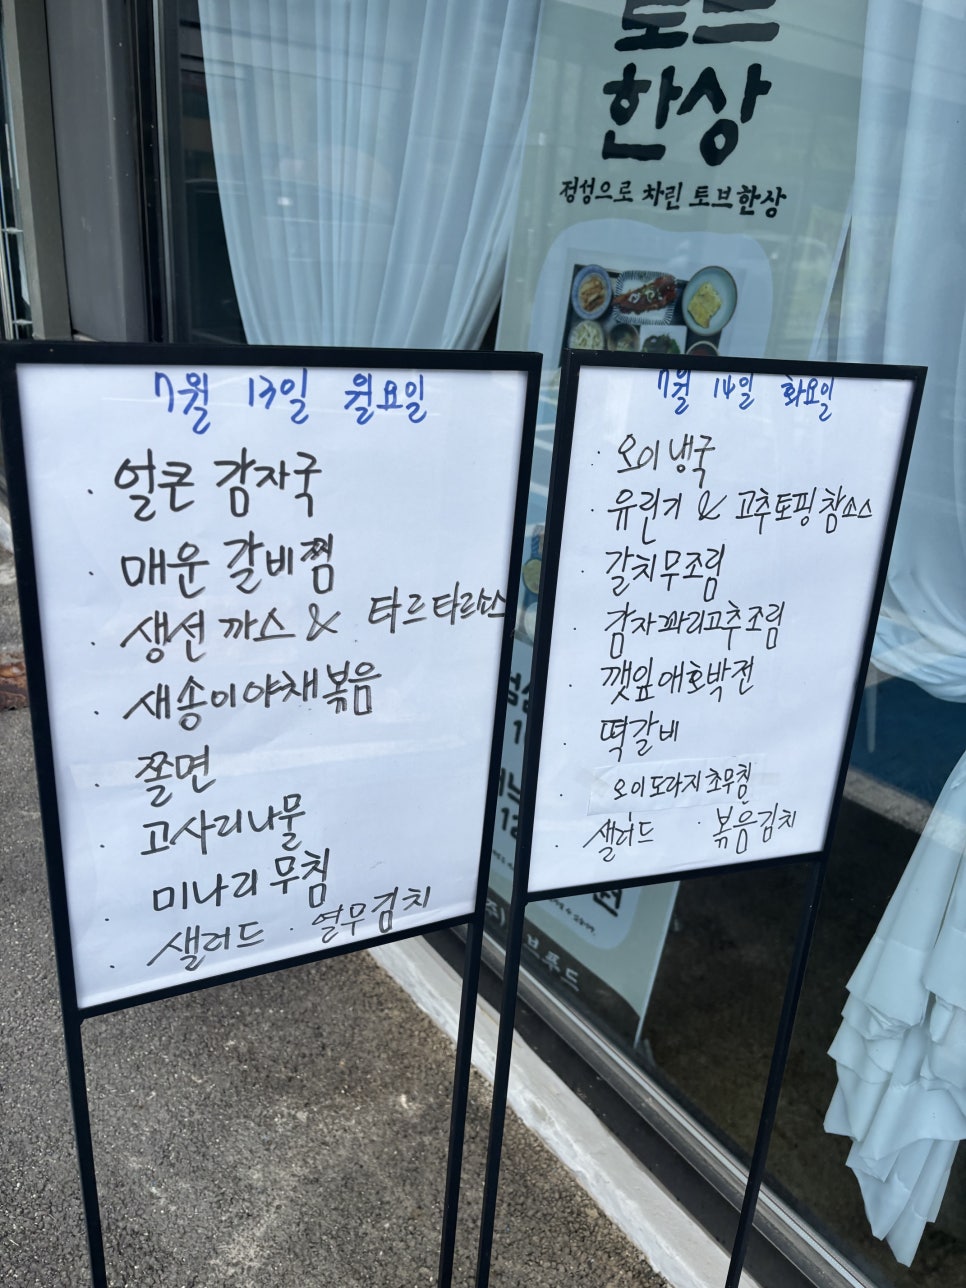 토브
한상
정성으로 차린 토브한상
7월 13일 월요일
· 얼큰 감자국
· 매운 갈비찜
· 생선까스 & 타르타르소스
· 새송이야채볶음
· 쫄면
· 고사리나물
· 미나리무침
· 샐러드 · 열무김치
7월 14일 화요일
· 오이냉국
· 유린기 & 고추토핑참소스
· 갈치무조림
· 감자꽈리고추조림
· 깻잎애호박전
· 떡갈비
· 오이도라지초무침
· 샐러드 · 볶음김치
푸드